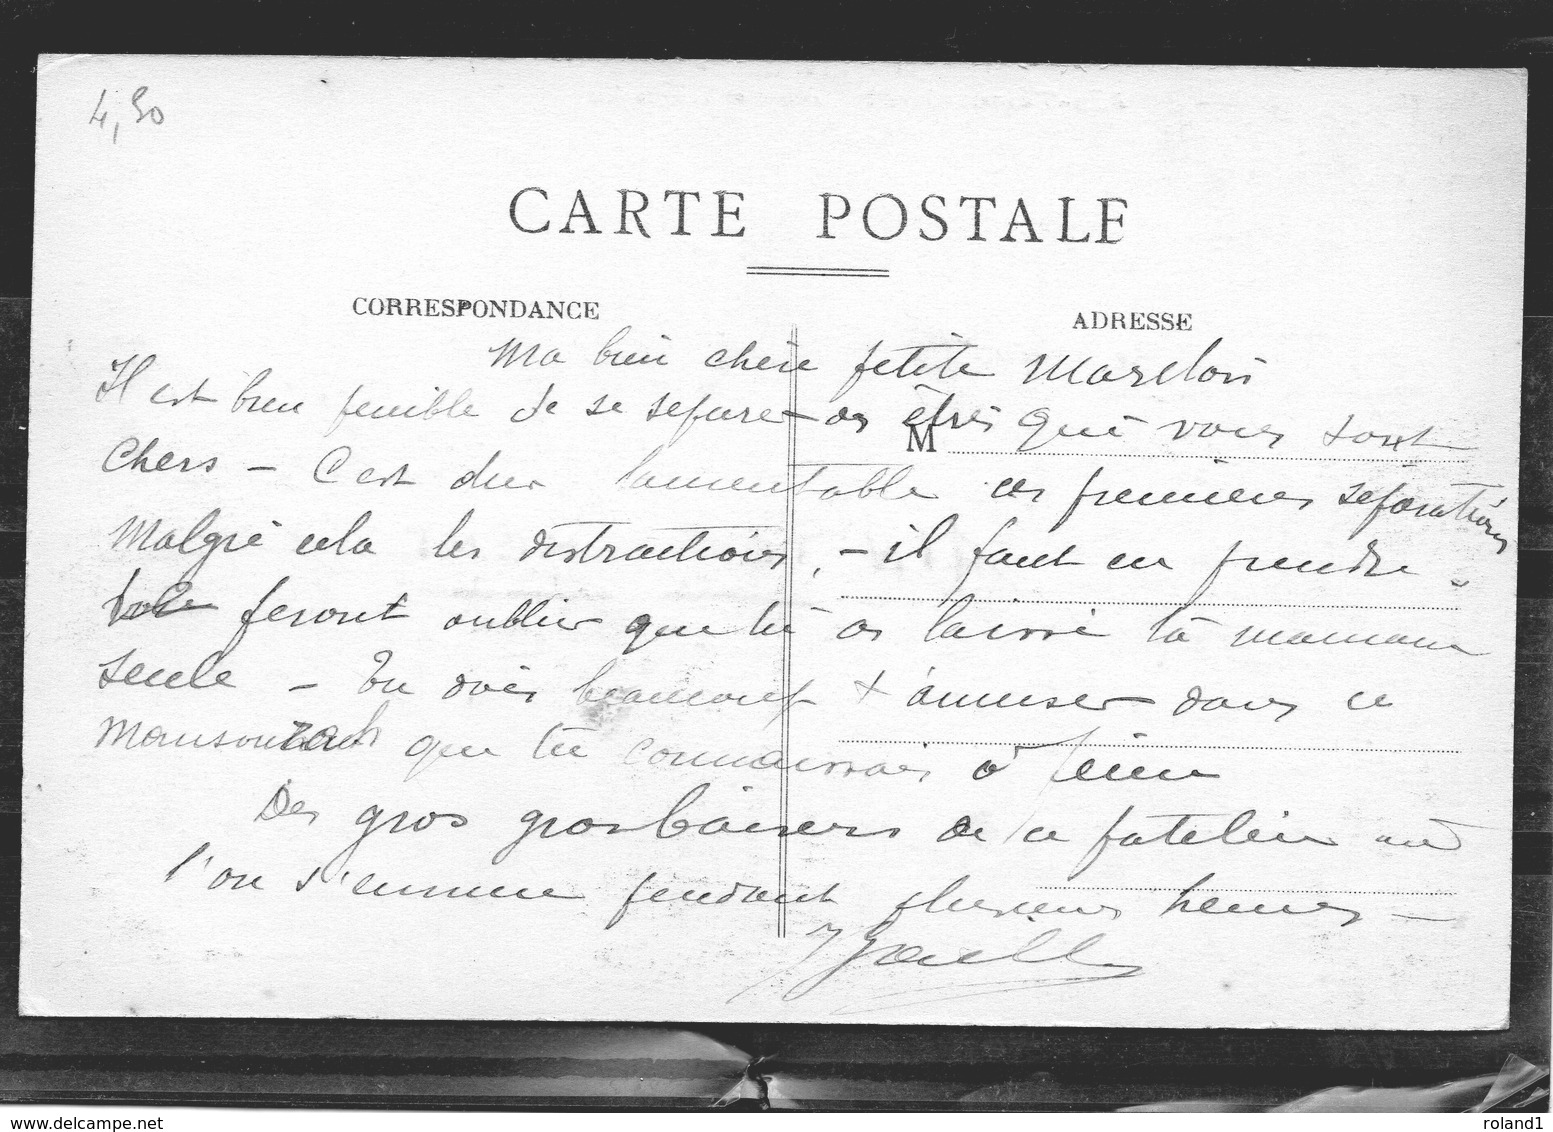 4,50
CARTE POSTALE
CORRESPONDANCE
ADRESSE
Ma bien chère petite
Il est bien penible de se separer des êtres qui vous sont
M
Chers – C'est dur lamentable ces premieres séparations
Malgré cela les distractions, – il faut en prendre.
feront oublier que tu as laissé ta maman
seule – Tu dois beaucoup t'amuser dans ce
Mansourah que tu connaissais à peine
Des gros gros baisers de ce patelin où
l'on s'ennuie pendant plusieurs heures –
delcampe.net
roland1